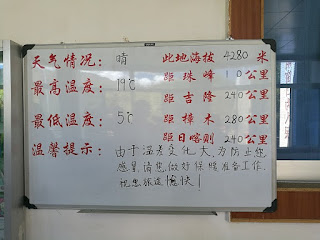 天气情况：晴 此地海拔 4280 米
最高温度：19℃ 距珠峰 10公里
距吉隆 240公里
最低温度：5℃ 距樟木 280公里
距日喀则 240公里
温馨提示：由于温差变化大，为防止您
感冒，请您做好保暖准备工作，
祝您旅途愉快！